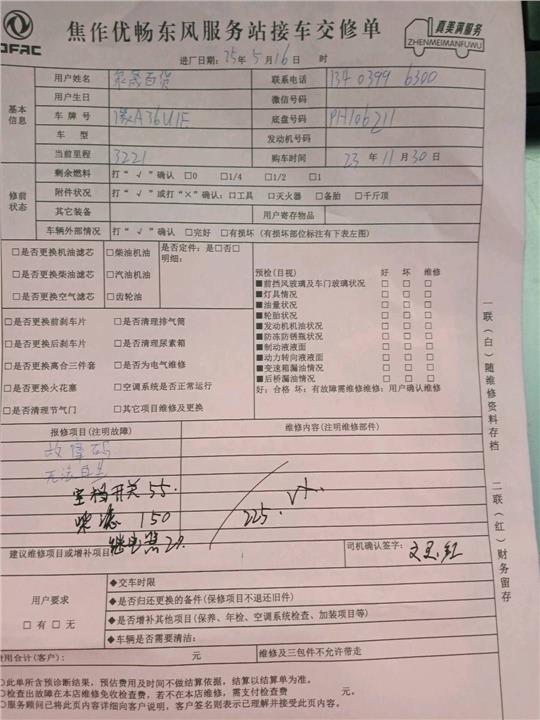 DFAC
焦作优畅东风服务站接车交修单
真美满服务
ZHENMEIMANFUWU
进厂日期：25年5月16日 时
基本信息
用户姓名 联系电话 134 0399 6300
用户生日 微信号码
车牌号 豫A36U1F 底盘号码 PH106211
车型 发动机号码
当前里程 3221 购车时间 23年11月30日
修前状态
剩余燃料 打“√”确认 □0 □1/4 □1/2 □1
附件状况 打“√”或打“×”确认：口工具 口灭火器 □备胎 □千斤顶
其它装备 用户寄存物品
车辆外部情况 打“√”确认 □完好 □有损坏（有损坏部位标注有下表左图）
□是否更换机油滤芯 □柴油机油 是否定件：是□否□
明细：
□是否更换柴油滤芯 □汽油机油
□是否更换空气滤芯 □齿轮油
□是否更换前刹车片 □是否清理排气筒
□是否更换后刹车片 □是否清理尿素箱
□是否更换离合三件套 □是否为电气维修
□是否更换火花塞 □空调系统是否正常运行
□是否清理节气门 □其它项目维修及更换
预检（目视） 好 坏 维修
■前挡风玻璃及车门玻璃状况 □ □ □
■灯具情况 □ □ □
■油量状况 □ □ □
■轮胎状况 □ □ □
■发动机机油状况 □ □ □
■防冻防锈瓶状况 □ □ □
■制动液液面 □ □ □
■动力转向液液面 □ □ □
■变速箱漏油情况 □ □ □
■后桥漏油情况 □ □ □
好：合格 坏：有故障需维修维修：用户确认维修
报修项目（注明故障） 维修内容（注明维修部件）
故障码
空档开关 55.
柴滤 150
继电器 20.
225.
建议维修项目或增补项目 司机确认签字：
用户要求
□有□无
◆交车时限
◆是否归还更换的备件（保修项目不退还旧件）
◆是否增补其他项目（保养、年检、空调系统检查、加装项目等）
◆车辆是否需要清洁：
费用合计（客户）： 元 维修及三包件不允许带走
○此单所含预诊断结果，预估费用及时间不做结算依据，结算以结算单为准。
○检查出故障在本店维修免收检查费，若不在本店维修，需支付检查费 元。
○服务顾问已将此页内容详细向客户说明，客户签名则表示已理解并接受此页内容。
一联（白）随维修资料存档
二联（红）财务留存